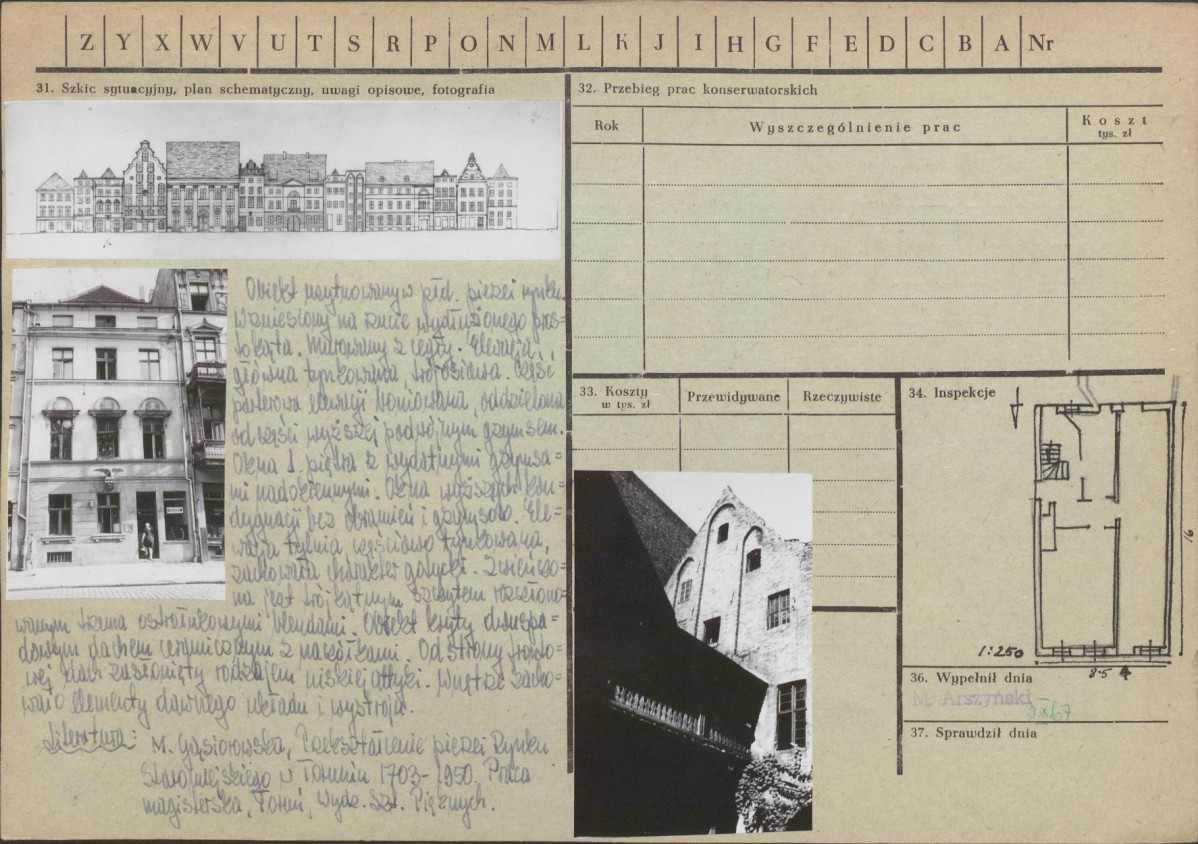 Z Y X W V U T S R P O N M L K J I H G F E D C B A Nr
31. Szkic sytuacyjny, plan schematyczny, uwagi opisowe, fotografia
Obiekt usytuowany w płd. pierzei rynku.
Wzniesiony na rzucie wydłużonego pros-
tokąta. Murowany z cegły. Elewacja
główna tynkowana, trójosiowa. Część
parterowa elewacji boniowana, oddzielona
od części wyższej podwójnym gzymsem.
Okna I. piętra z wydatnymi gzymsa-
mi nadokiennymi. Okna wyższych kon-
dygnacji bez obramień i gzymsów. Ele-
wacja tylnia, częściowo tynkowana,
zachowała charakter gotycki. Zwieńczo-
na jest trójkątnym szczytem rozczłonko-
wanym trzema ostrołukowymi blendami. Obiekt kryty dwuspa-
dowym dachem ceramicznym z naczółkami. Od strony fronto-
wej dach zasłonięty rodzajem niskiej attyki. Wnętrze zacho-
wało elementy dawnego układu i wystroju.
Literatura: M. Gąsiorowska, Przekształcenie pierzei Rynku
Staromiejskiego w Toruniu 1703-1950. Praca
magisterska, Toruń, Wydz. Szt. Pięknych.
32. Przebieg prac konserwatorskich
Rok Wyszczególnienie prac Koszt
tys. zł
33. Koszty
w tys. zł
Przewidywane Rzeczywiste
34. Inspekcje
16
1:250
8.5
36. Wypełnił dnia
M. Arszyński
37. Sprawdził dnia